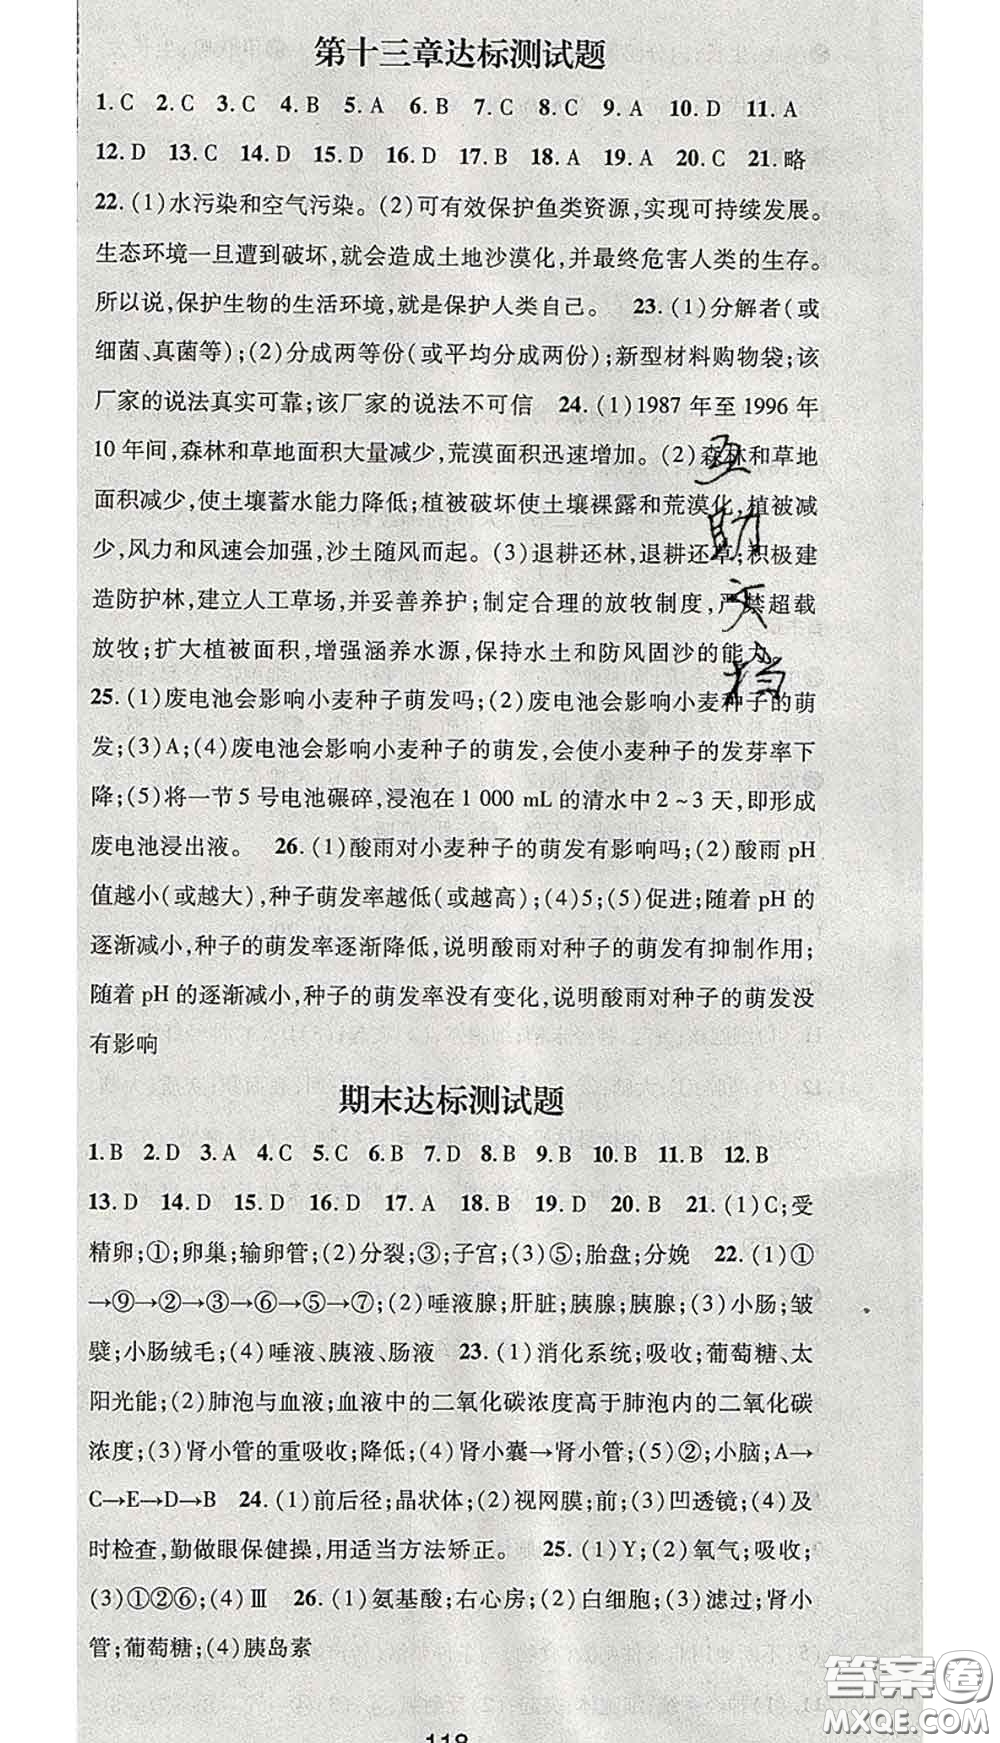 第十三章达标测试题
1.C 2.C 3.C 4.B 5.A 6.B 7.C 8.C 9.A 10.D 11.A
12.D 13.C 14.D 15.D 16.D 17.B 18.A 19.A 20.C 21.略
22.(1)水污染和空气污染。(2)可有效保护鱼类资源,实现可持续发展。
生态环境一旦遭到破坏,就会造成土地沙漠化,并最终危害人类的生存。
所以说,保护生物的生活环境,就是保护人类自己。 23.(1)分解者(或
细菌、真菌等);(2)分成两等份(或平均分成两份);新型材料购物袋;该
厂家的说法真实可靠;该厂家的说法不可信 24.(1)1987年至1996年
10年间,森林和草地面积大量减少,荒漠面积迅速增加。(2)森林和草地
面积减少,使土壤蓄水能力降低;植被破坏使土壤裸露和荒漠化,植被减
少,风力和风速会加强,沙土随风而起。(3)退耕还林,退耕还草;积极建
造防护林,建立人工草场,并妥善养护;制定合理的放牧制度,严禁超载
放牧;扩大植被面积,增强涵养水源,保持水土和防风固沙的能力
25.(1)废电池会影响小麦种子萌发吗;(2)废电池会影响小麦种子的萌
发;(3)A;(4)废电池会影响小麦种子的萌发,会使小麦种子的发芽率下
降;(5)将一节5号电池碾碎,浸泡在1 000 mL的清水中2~3天,即形成
废电池浸出液。 26.(1)酸雨对小麦种子的萌发有影响吗;(2)酸雨pH
值越小(或越大),种子萌发率越低(或越高);(4)5;(5)促进;随着pH的
逐渐减小,种子的萌发率逐渐降低,说明酸雨对种子的萌发有抑制作用;
随着pH的逐渐减小,种子的萌发率没有变化,说明酸雨对种子的萌发没
有影响
期末达标测试题
1.B 2.D 3.A 4.C 5.C 6.B 7.D 8.B 9.B 10.B 11.B 12.B
13.D 14.D 15.D 16.D 17.A 18.B 19.D 20.B 21.(1)C;受
精卵;①;卵巢;输卵管;(2)分裂;③;子宫;(3)⑤;胎盘;分娩 22.(1)①
→⑨→②→③→⑥→⑤→⑦;(2)唾液腺;肝脏;胰腺;胰腺;(3)小肠;皱
襞;小肠绒毛;(4)唾液、胰液、肠液 23.(1)消化系统;吸收;葡萄糖、太
阳光能;(2)肺泡与血液;血液中的二氧化碳浓度高于肺泡内的二氧化碳
浓度;(3)肾小管的重吸收;降低;(4)肾小囊→肾小管;(5)②;小脑;A→
C→E→D→B 24.(1)前后径;晶状体;(2)视网膜;前;(3)凹透镜;(4)及
时检查,勤做眼保健操,用适当方法矫正。 25.(1)Y;(2)氧气;吸收;
(3)①②⑥;(4)Ⅲ 26.(1)氨基酸;右心房;(2)白细胞;(3)滤过;肾小
管;葡萄糖;(4)胰岛素
118
互
助
文
档
答案圈
MXQE.COM